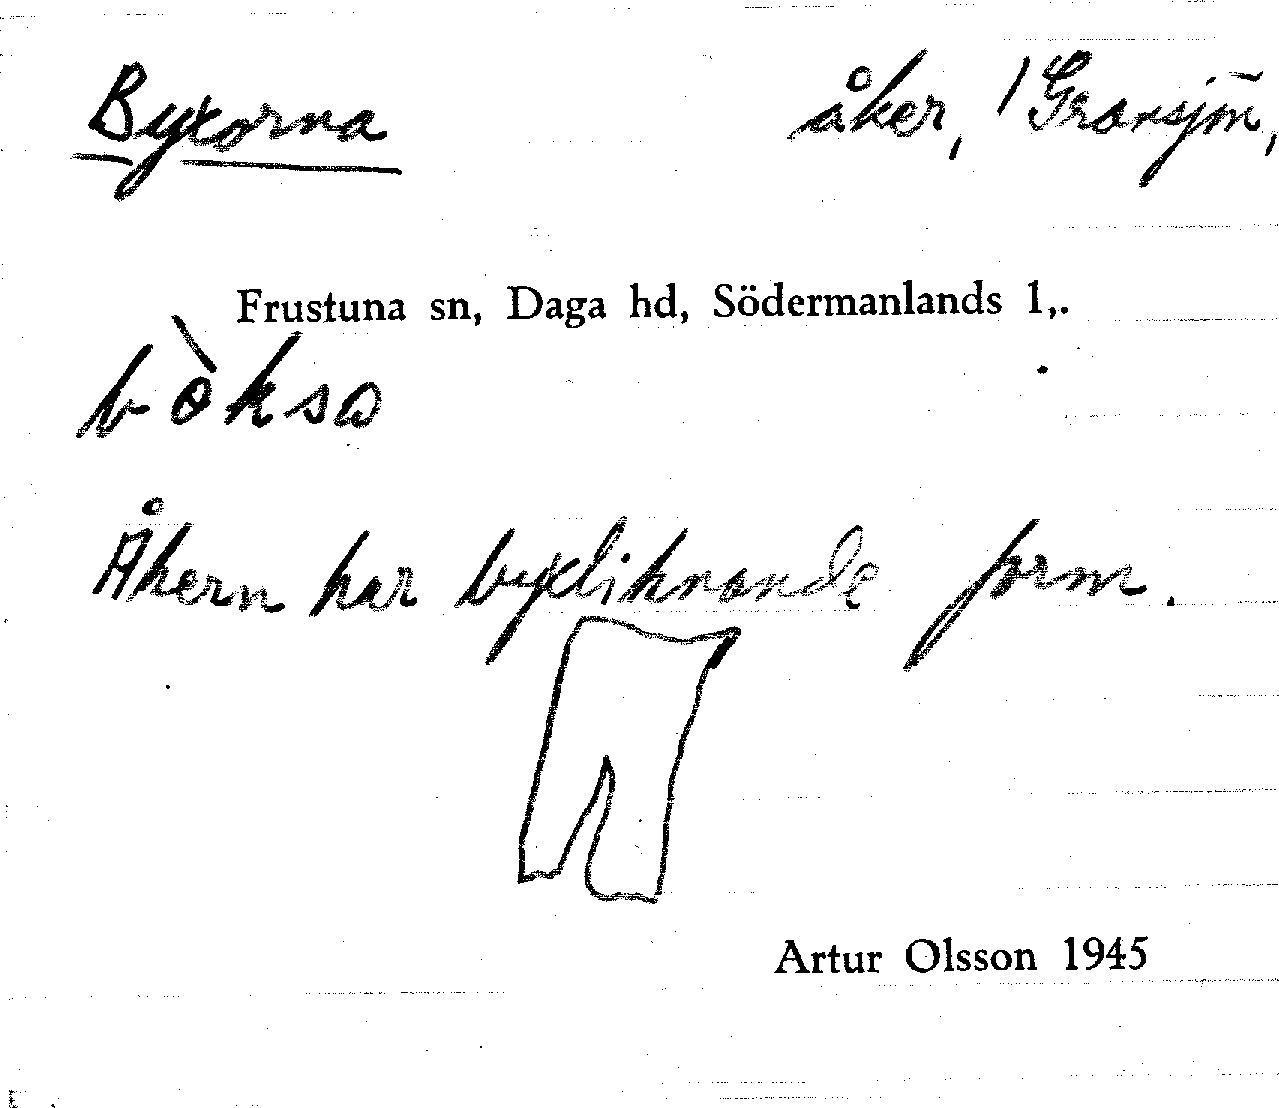 Byxorna åker, 1 Gransjön,
Frustuna sn, Daga hd, Södermanlands l,.
bòksɷ
Åkern har byxliknande form.
Artur Olsson 1945